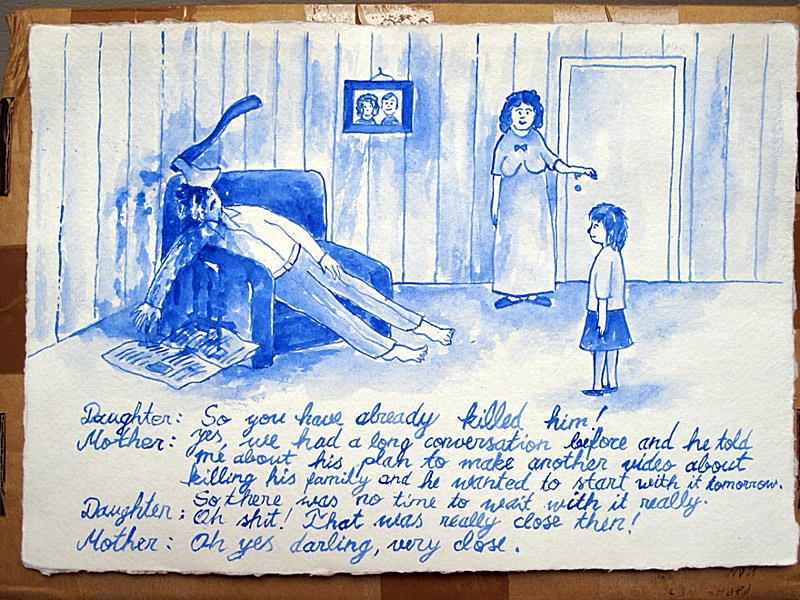 Daughter: So you have already killed him!
Mother: Yes, we had a long conversation before and he told
me about his plan to make another video about
killing his family and he wanted to start with it tomorrow.
So there was no time to wait with it really.
Daughter: Oh shit! That was really close then!
Mother: Oh yes darling, very close.